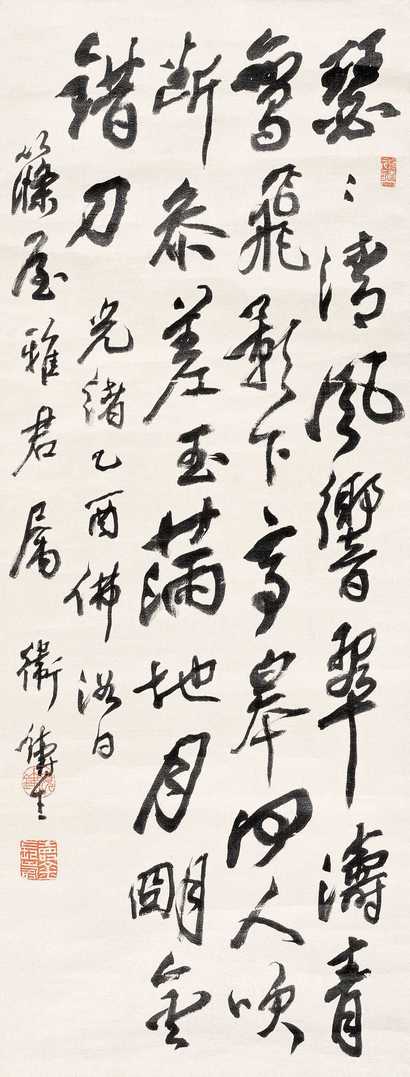 瑟〻清風響翠濤青
鸞飛影下亭皋何人吹
断參差玉滿地月明金
錯刀 光緒乙酉佛浴日
篠屋雅君属 衛鑄生